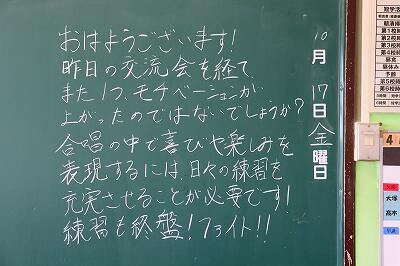 おはようございます!
昨日の交流会を経て、
また1つ、モチベーションが
上がったのではないでしょうか?
合唱の中で喜びや楽しみを
表現するには、日々の練習を
充実させることが必要です!
練習も終盤!ファイト!!
10月17日金曜日
短学活
朝清掃
第1校時
第2校時
第3校時
第4校時
昼食
昼休み
予鈴
第5校時
第6校時
大塚
高木
早退